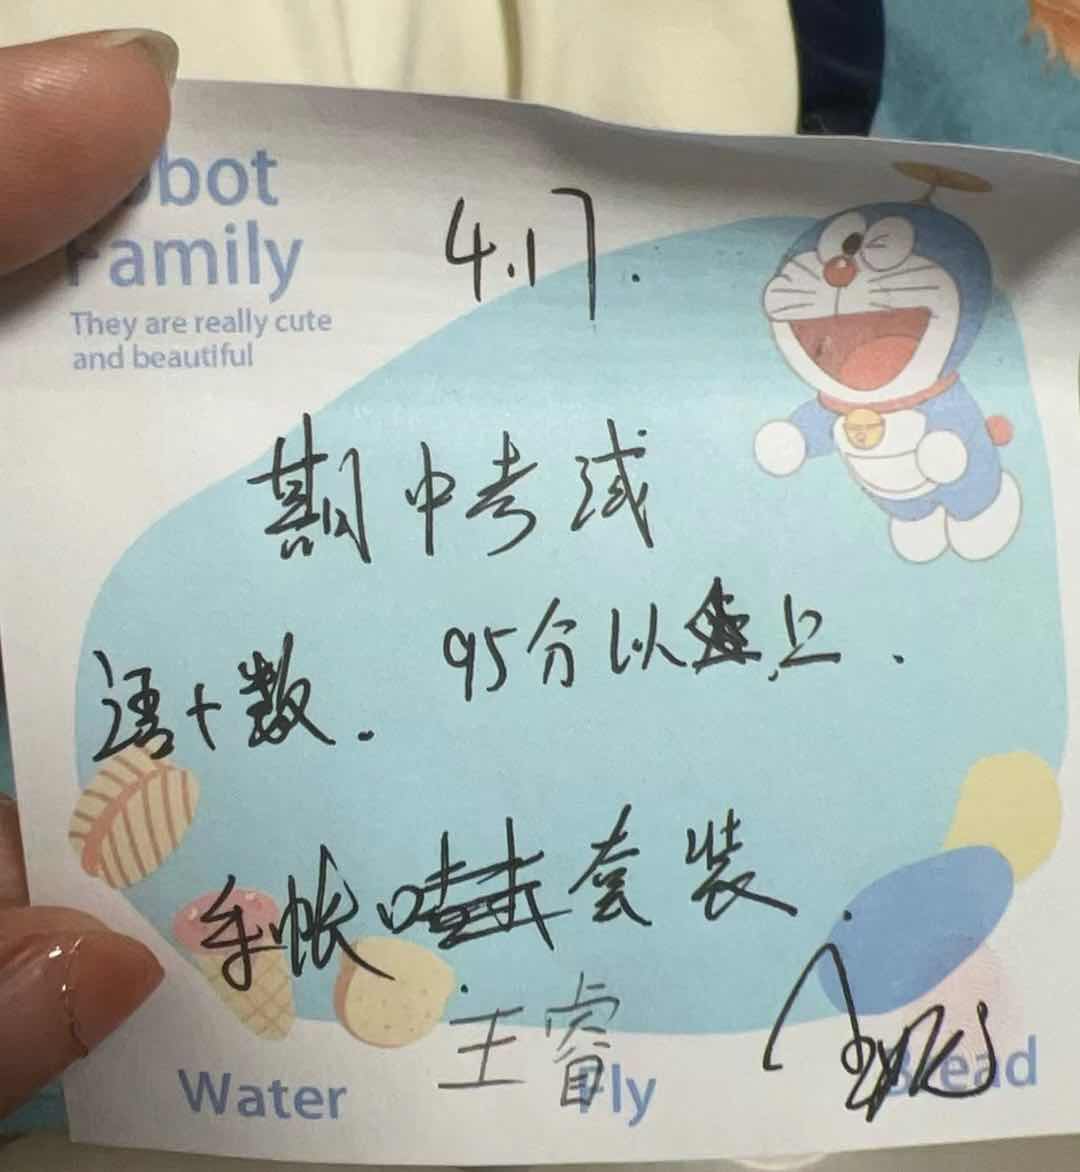 bot
Family
They are really cute
and beautiful
4.17.
期中考试
语+数. 95分以上.
手帐套装.
王睿
Water Fly Bread